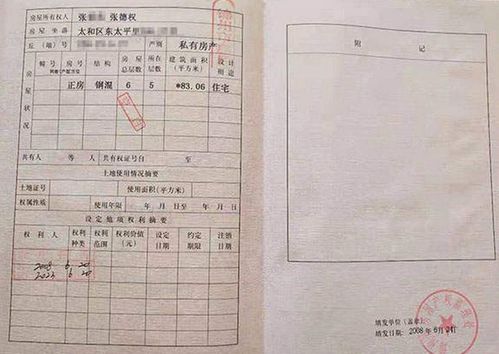 房屋所有权人 张 张德权
房屋坐落 太和区东太平里
丘(地)号 产别 私有房产
房屋状况 幢号 房号 结构 房屋总层数 所在层数 建筑面积(平方米) 设计用途
正房 钢混 6 5 *83.06 住宅
共有人 等 人 共有权证号自 至
土地使用情况摘要
土地证号 使用面积(平方米)
权属性质 使用年限 年 月 日至 年 月 日
设定他项权利摘要
权利人 权利种类 权利范围 权利价值(元) 设定日期 约定期限 注销日期
2008 6 20
6 20
附 记
填发单位(盖章)
填发日期: 2008年6月24日